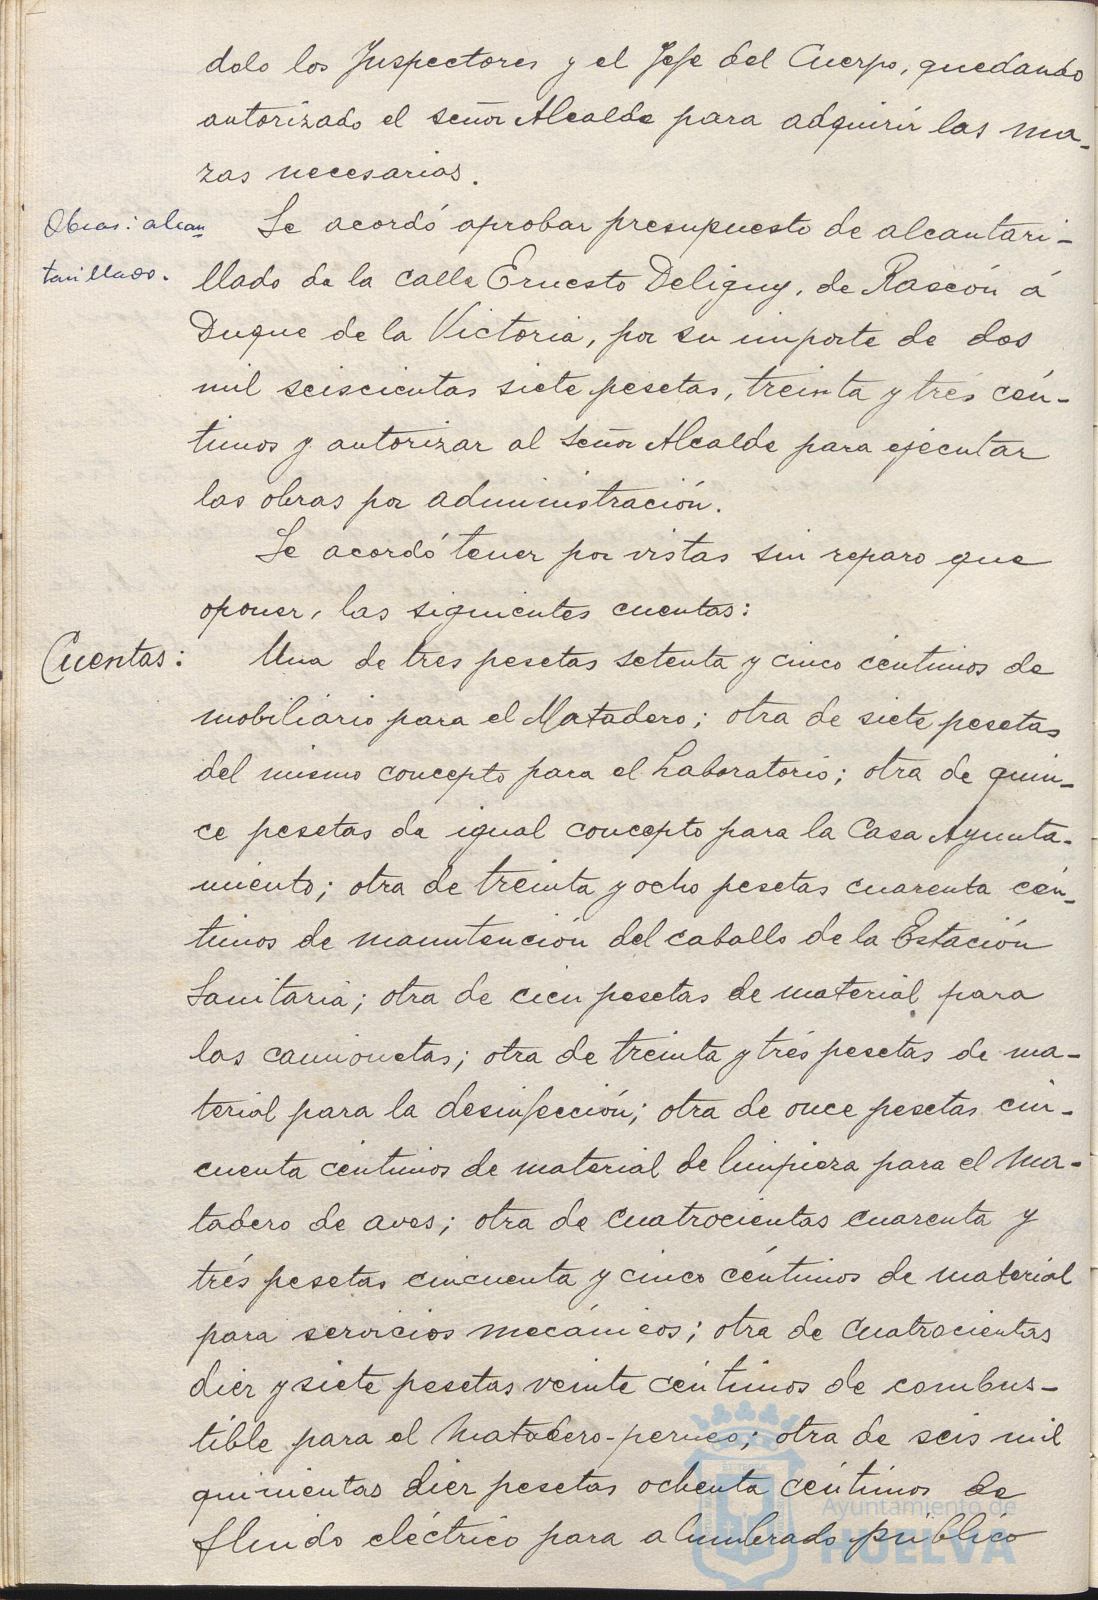 dolo los Inspectores y el Jefe del Cuerpo, quedando
autorizado el señor Alcalde para adquirir las ma-
zas necesarias.
Obras: alcan
tarillado.
Se acordó aprobar presupuesto de alcantari-
llado de la calle Ernesto Deligny, de Rascón á
Duque de la Victoria, por su importe de dos
mil seiscientas siete pesetas, treinta y tres cén-
timos y autorizar al señor Alcalde para ejecutar
las obras por administración.
Se acordó tener por vistas sin reparo que
oponer, las siguientes cuentas:
Cuentas:
Una de tres pesetas setenta y cinco céntimos de
mobiliario para el Matadero; otra de siete pesetas
del mismo concepto para el Laboratorio; otra de quin-
ce pesetas de igual concepto para la Casa Ayunta-
miento; otra de treinta y ocho pesetas cuarenta cén-
timos de manutención del caballo de la Estación
Sanitaria; otra de cien pesetas de material para
las camionetas; otra de treinta y trés pesetas de ma-
terial para la desinfección; otra de once pesetas cin-
cuenta céntimos de material de limpieza para el Ma-
tadero de aves; otra de cuatrocientas cuarenta y
trés pesetas cincuenta y cinco céntimos de material
para servicios mecánicos; otra de cuatrocientas
diez y siete pesetas veinte céntimos de combus-
tible para el Matadero-perneo; otra de seis mil
quinientas diez pesetas ochenta céntimos de
fluido eléctrico para alumbrado público
Ayuntamiento de
HUELVA